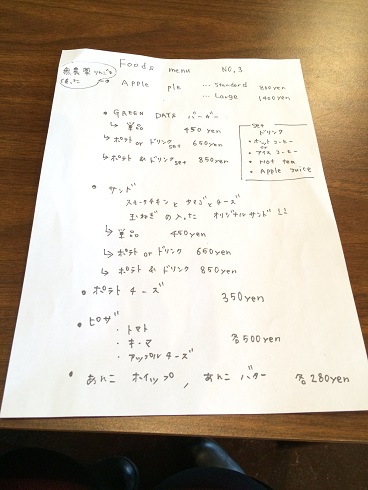 Foods menu NO,3
無農薬りんごを
使った →
Apple pie ... Standard 800yen
... Large 1400yen
• GREEN DAYS バーガー
↳ 単品 450yen
↳ ポテト or ドリンク set 650yen
↳ ポテト & ドリンク set 850yen
set
ドリンク
• ホットコーヒー
or
アイスコーヒー
• Hot tea
• Apple Juice
• サンド
スモークチキンとタマゴとチーズ
玉ねぎの入った オリジナルサンド!!
↳ 単品 450yen
↳ ポテト or ドリンク 650yen
↳ ポテト & ドリンク 850yen
• ポテトチーズ 350yen
• ピザ
・トマト
・キーマ 各500yen
・アップルチーズ
• あんこ ホイップ , あんこ バター 各280yen